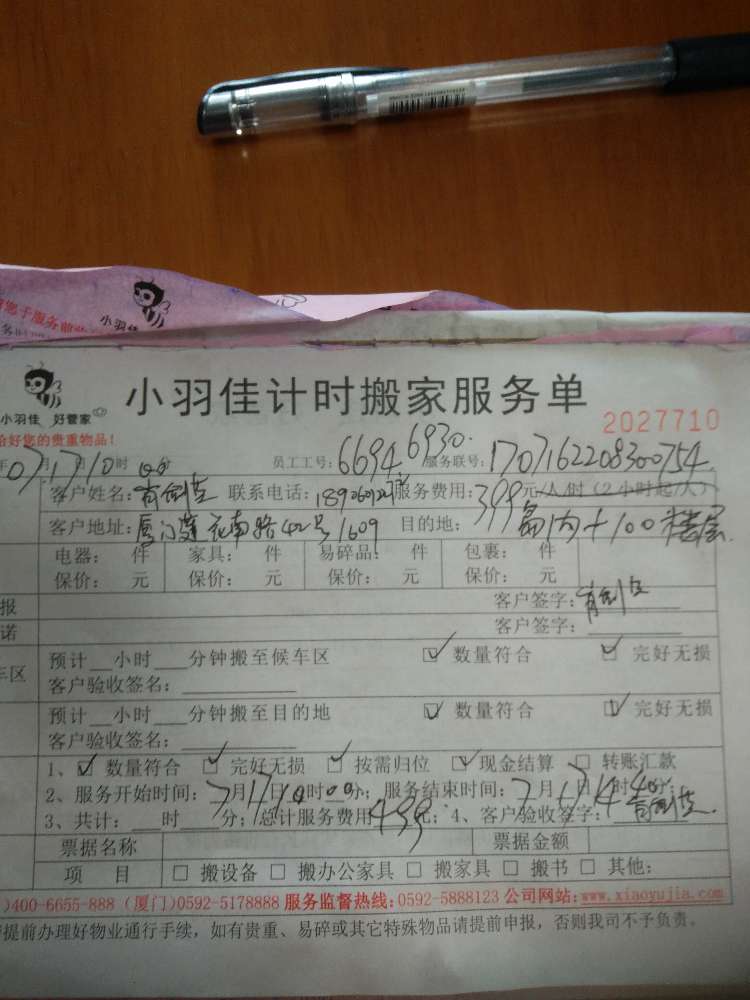 小羽佳
小羽佳 好管家
小羽佳计时搬家服务单
2027710
给好您的贵重物品!
年07月17日10时00分 员工工号:6694 6930. 服务联号:1707162208300754.
客户姓名: 联系电话: 服务费用:399元/人/时(2小时起/人)
客户地址:厦门莲花南路42号1609 目的地:岛内+100楼层
电器: 件 家具: 件 易碎品: 件 包裹: 件
保价: 元 保价: 元 保价: 元 保价: 元
报 客户签字:
诺 客户签字:
预计__小时___分钟搬至候车区 ☑ 数量符合 ☑ 完好无损
车区 客户验收签名:
预计__小时___分钟搬至目的地 ☑ 数量符合 ☑ 完好无损
客户验收签名:
1、☑ 数量符合 ☑ 完好无损 ☑ 按需归位 ☑ 现金结算 □ 转账汇款
2、服务开始时间:7月17日10时00分;服务结束时间:7月17日14时40分;
3、共计:___时___分;总计服务费用499元;4、客户验收签字:
票据名称 票据金额
项 目 □ 搬设备 □ 搬办公家具 □ 搬家具 □ 搬书 □ 其他:
)400-6655-888 (厦门)0592-5178888 服务监督热线:0592-5888123 公司网站:www.xiaoyujia.com
提前办理好物业通行手续,如有贵重、易碎或其它特殊物品请提前申报,否则我司不予负责。